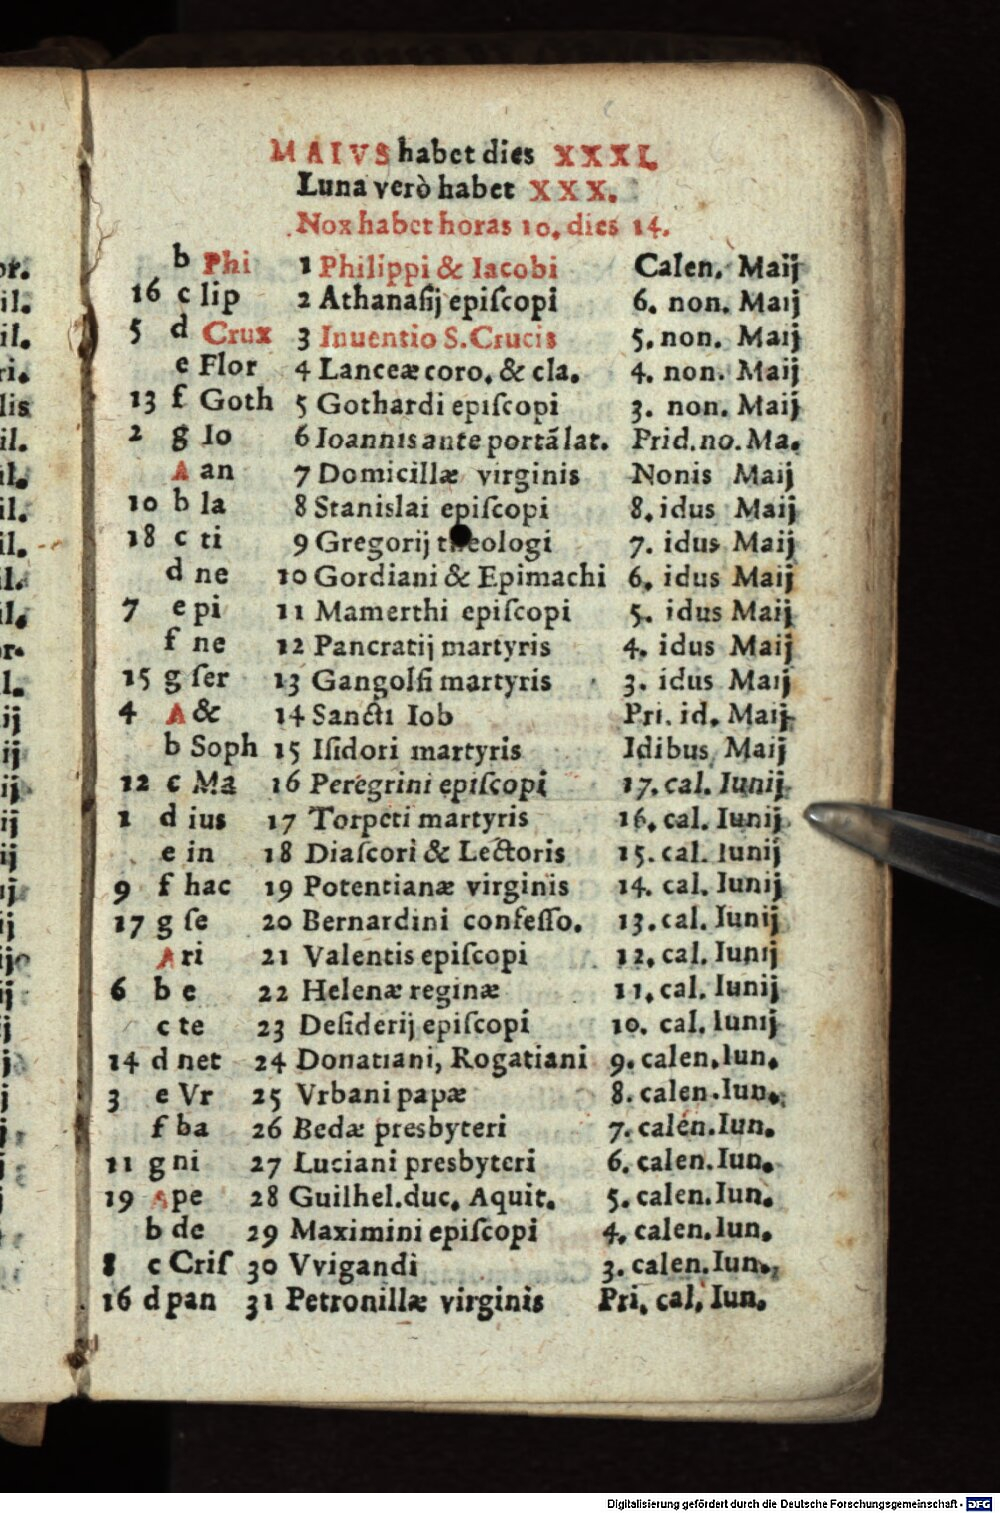 MAIVS habet dies XXXI.
Luna verò habet XXX.
Nox habet horas 10. dies 14.
b Phi 1 Philippi & Iacobi Calen. Maij
16 c lip 2 Athanaſij epiſcopi 6. non. Maij
5 d Crux 3 Inuentio S. Crucis 5. non. Maij
e Flor 4 Lanceæ coro. & cla. 4. non. Maij
13 f Goth 5 Gothardi epiſcopi 3. non. Maij
2 g Io 6 Ioannis ante portã lat. Prid. no. Ma.
A an 7 Domicillæ virginis Nonis Maij
10 b la 8 Stanislai epiſcopi 8. idus Maij
18 c ti 9 Gregorij theologi 7. idus Maij
d ne 10 Gordiani & Epimachi 6. idus Maij
7 e pi 11 Mamerthi epiſcopi 5. idus Maij
f ne 12 Pancratij martyris 4. idus Maij
15 g ſer 13 Gangolfi martyris 3. idus Maij
4 A & 14 Sancti Iob Pri. id. Maij
b Soph 15 Iſidori martyris Idibus Maij
12 c Ma 16 Peregrini epiſcopi 17. cal. Iunij
1 d ius 17 Torpeti martyris 16. cal. Iunij
e in 18 Diaſcori & Lectoris 15. cal. Iunij
9 f hac 19 Potentianæ virginis 14. cal. Iunij
17 g ſe 20 Bernardini confeſſo. 13. cal. Iunij
A ri 21 Valentis epiſcopi 12. cal. Iunij
6 b e 22 Helenæ reginæ 11. cal. Iunij
c te 23 Deſiderij epiſcopi 10. cal. Iunij
14 d net 24 Donatiani, Rogatiani 9. calen. Iun.
3 e Vr 25 Vrbani papæ 8. calen. Iun.
f ba 26 Bedæ presbyteri 7. calen. Iun.
11 g ni 27 Luciani presbyteri 6. calen. Iun.
19 A pe 28 Guilhel. duc. Aquit. 5. calen. Iun.
b de 29 Maximini epiſcopi 4. calen. Iun.
8 c Criſ 30 Vvigandi 3. calen. Iun.
16 d pan 31 Petronillæ virginis Pri. cal. Iun.
Digitalisierung gefördert durch die Deutsche Forschungsgemeinschaft - DFG